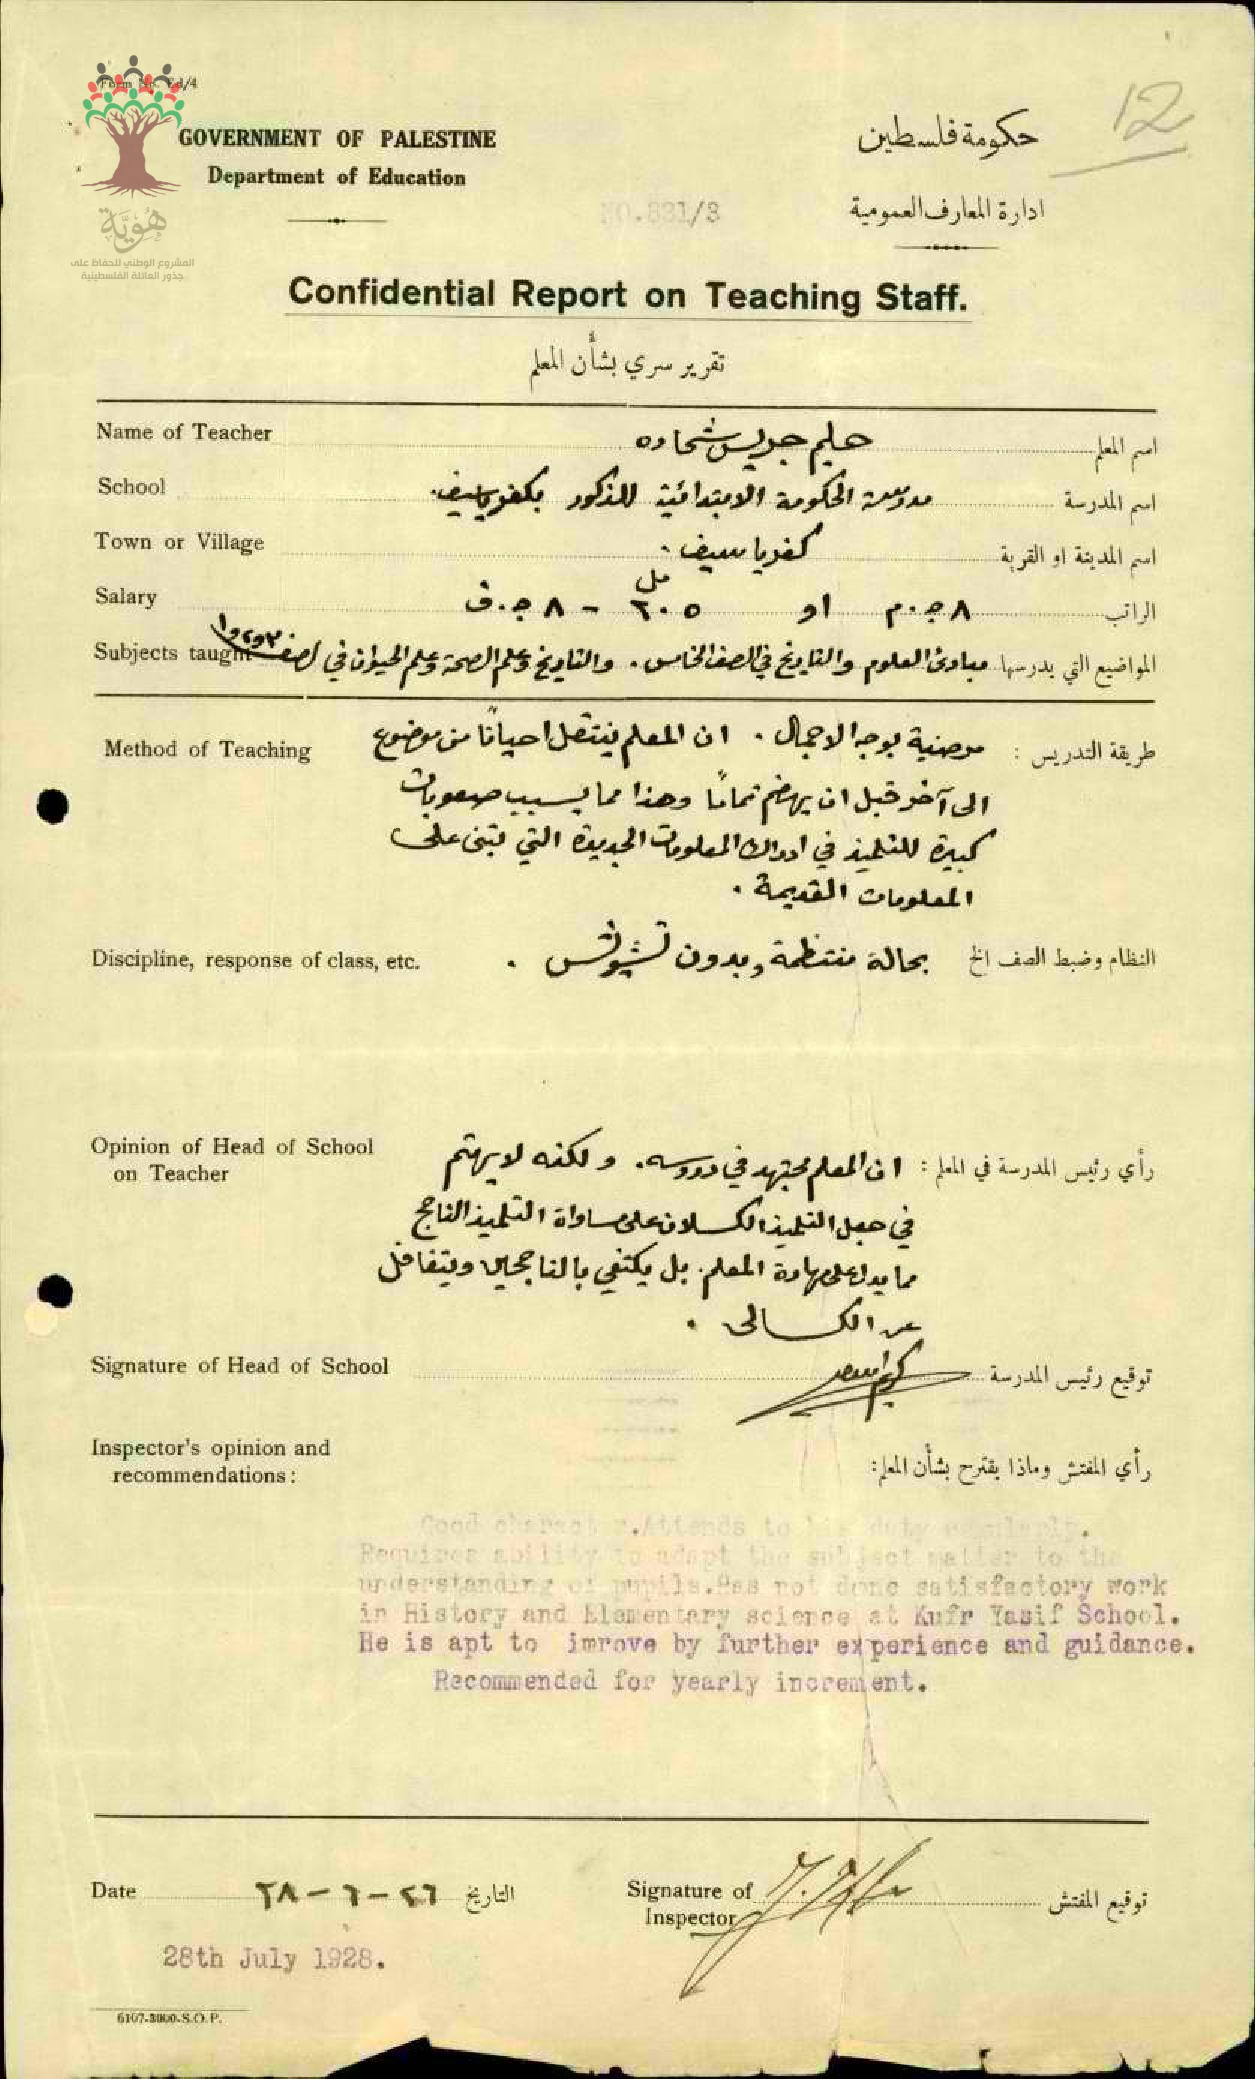 Form No. Ed/4
GOVERNMENT OF PALESTINE
Department of Education
حكومة فلسطين
ادارة المعارف العمومية
12
NO.831/3
هُوِيَّة
المشروع الوطني للحفاظ على
جذور العائلة الفلسطينية
Confidential Report on Teaching Staff.
تقرير سري بشأن المعلم
Name of Teacher حليم جريس شحاده اسم المعلم
School مدرسة الحكومة الابتدائية للذكور بكفرياسيف. اسم المدرسة
Town or Village كفرياسيف. اسم المدينة او القرية
Salary ٨ ج.م او ٢٠٥ مل - ٨ ج.ف الراتب
Subjects taught مبادئ العلوم والتاريخ في الصف الخامس. والتاريخ وعلم الصحة وعلم الحيوان في الصف ٣ و٢ و١ المواضيع التي يدرسها
Method of Teaching طريقة التدريس : مرضية بوجه الاجمال. ان المعلم ينتقل احيانًا من موضوع
الى آخر قبل ان يهضم تمامًا وهذا مما يسبب صعوبات
كبيرة للتلميذ في ادراك المعلومات الجديدة التي تبنى على
المعلومات القديمة.
Discipline, response of class, etc. النظام وضبط الصف الخ بحالة منتظمة وبدون تشويش.
Opinion of Head of School
on Teacher
رأي رئيس المدرسة في المعلم : ان المعلم مجتهد في دروسه. ولكنه لا يهتم
في جعل التلميذ الكسلان على مساواة التلميذ الناجح
مما يدل على مهارة المعلم. بل يكتفي بالناجحين ويتغافل
عن الكسالى.
Signature of Head of School توقيع رئيس المدرسة
Inspector's opinion and
recommendations:
رأي المفتش وماذا يقترح بشأن المعلم:
Good character.Attends to his duty regularly.
Requires ability to adapt the subject matter to the
understanding of pupils.Has not done satisfactory work
in History and Elementary science at Kufr Yasif School.
He is apt to imrove by further experience and guidance.
Recommended for yearly increment.
Date ٢٦-٦-٢٨ التاريخ
Signature of
Inspector
توقيع المفتش
28th July 1928.
6107-3000-S.O.P.